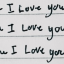 I Love you
I Love you
I Love you